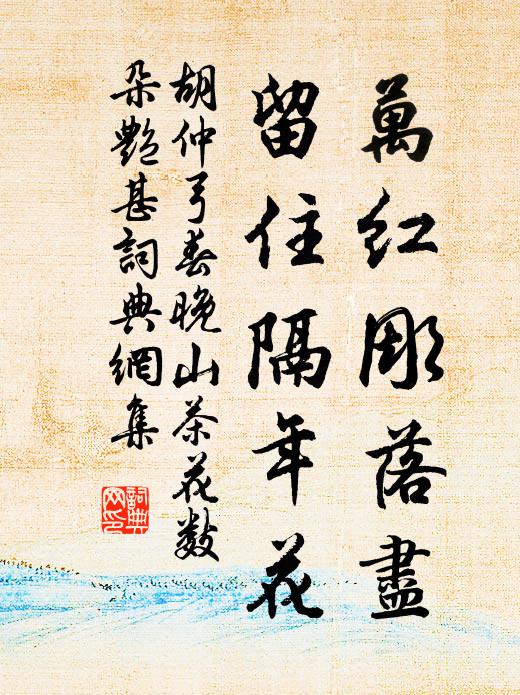 萬紅彫落盡
留住隔年花
胡仲弓春晚山茶花數
朵艷甚詞典網集
詞典网印